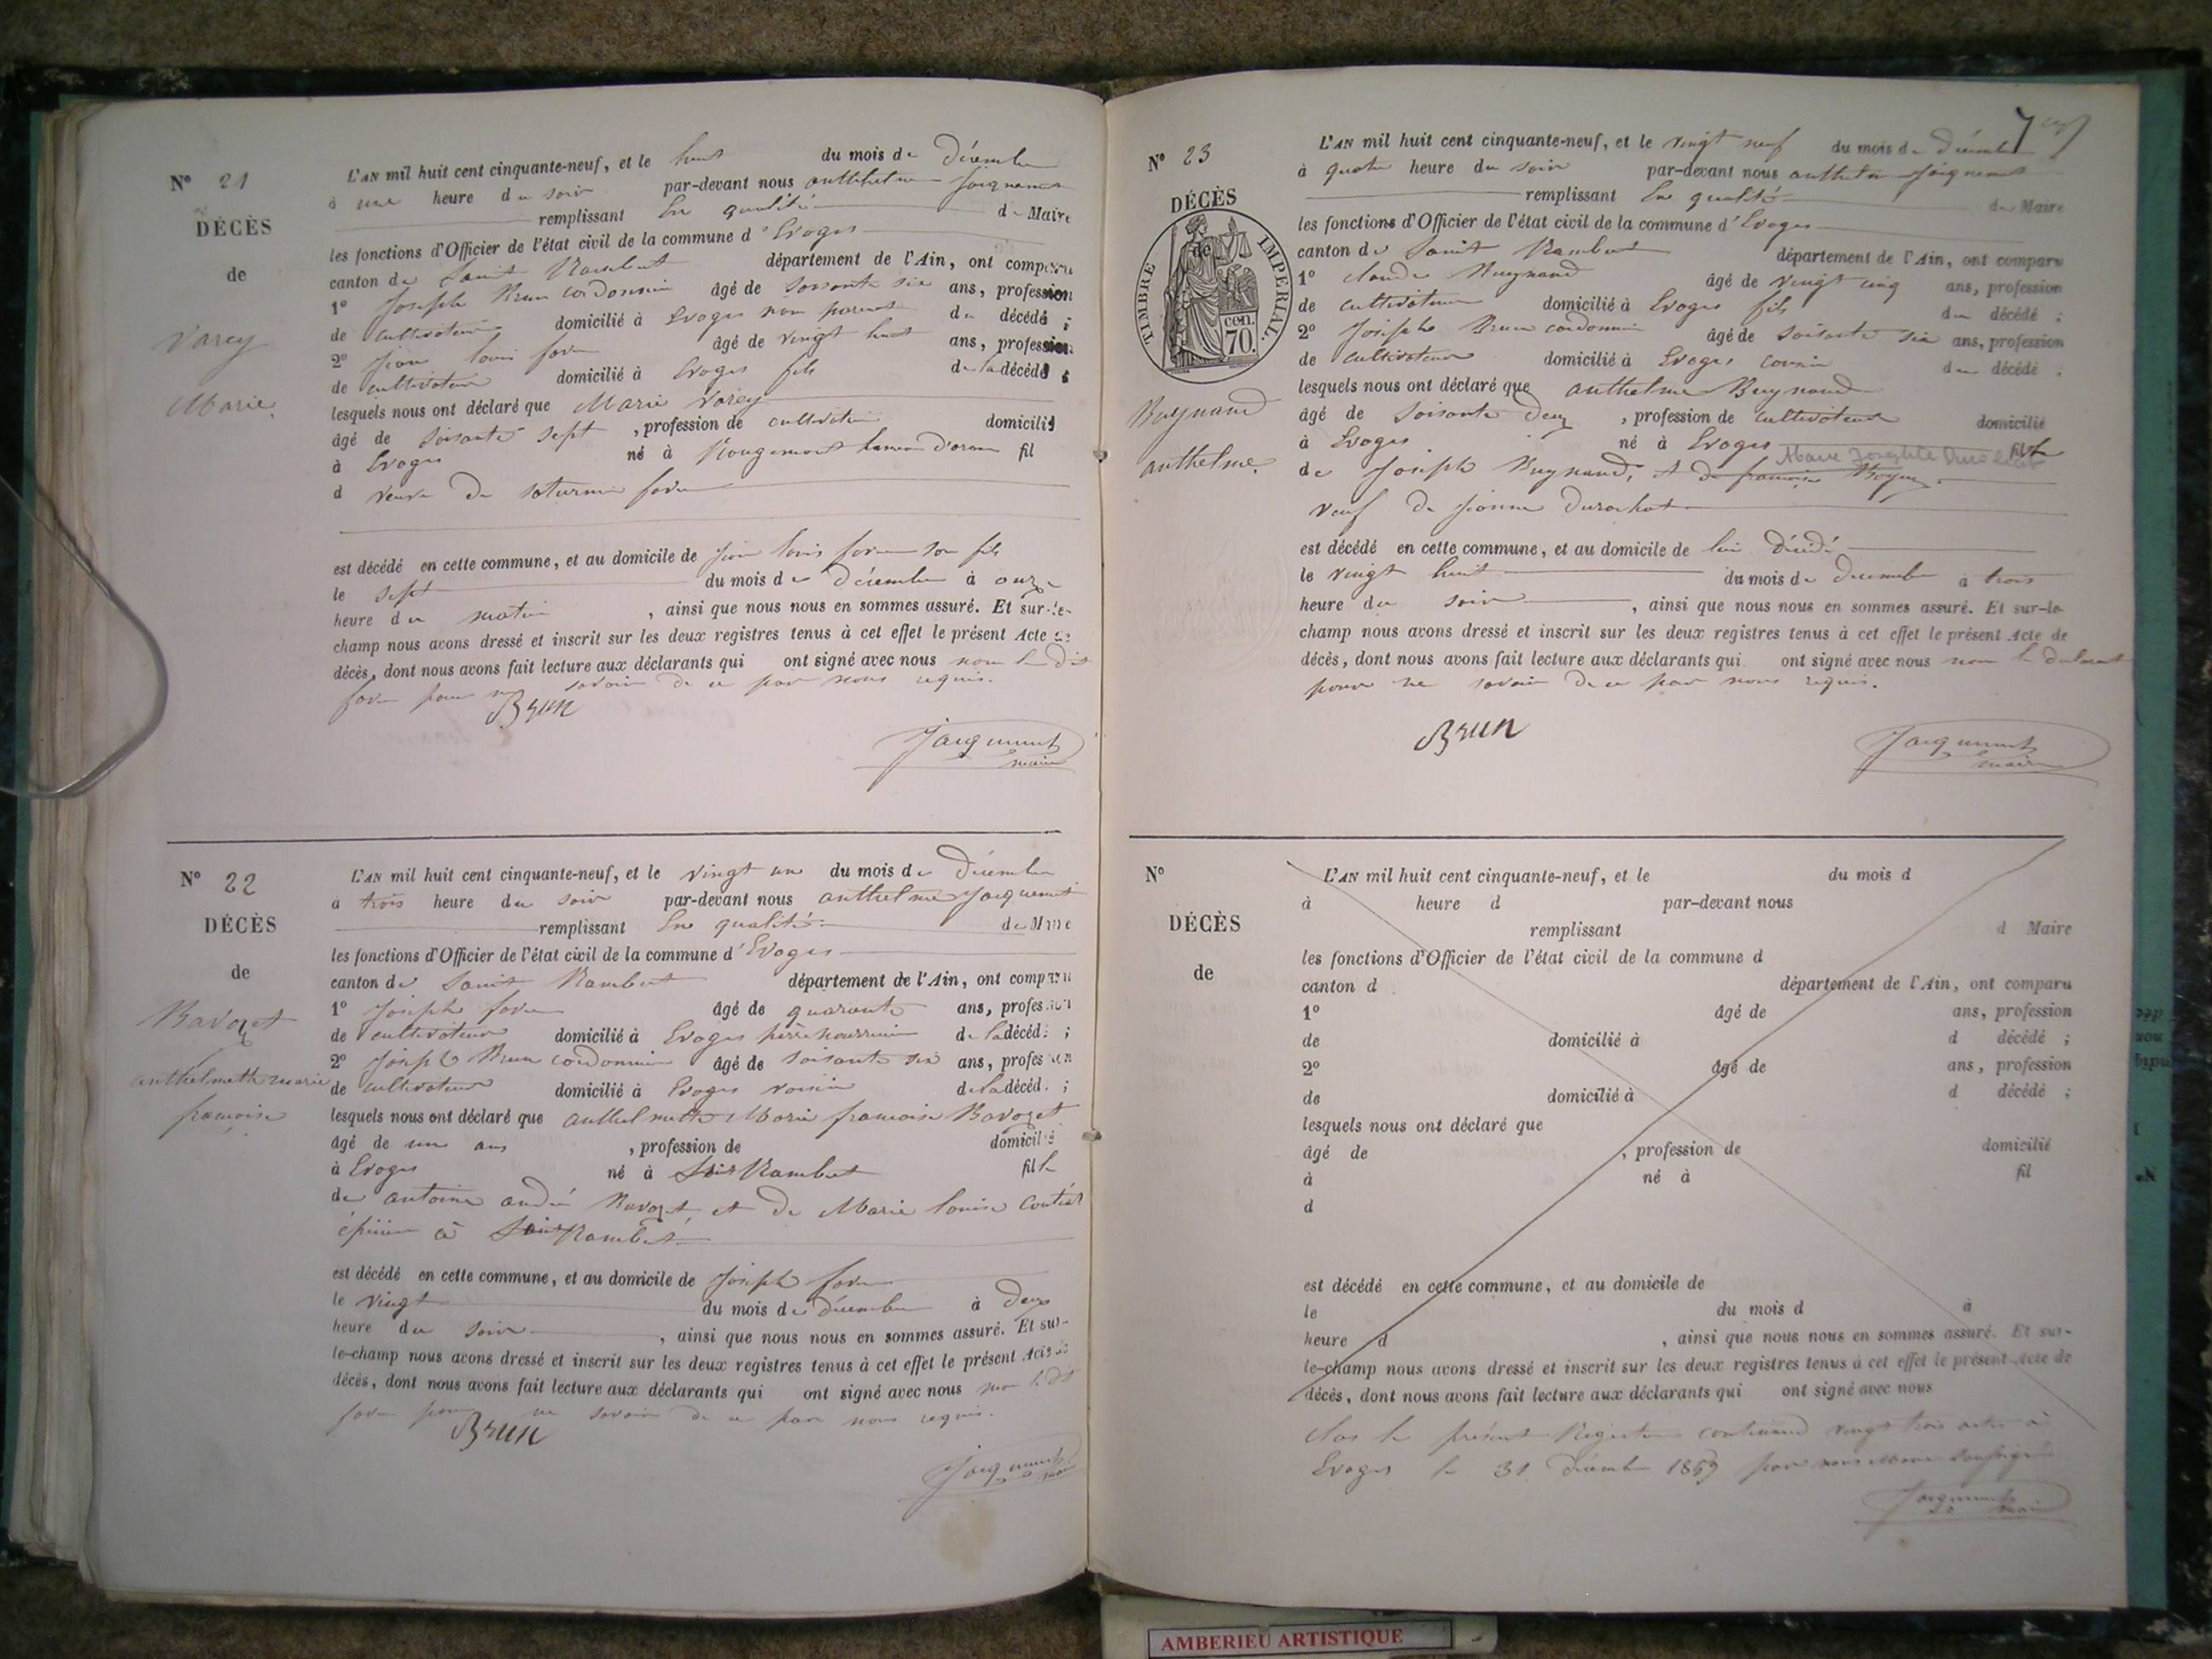 N° 21
DÉCÈS
de
Varey
Marie
L'AN mil huit cent cinquante-neuf, et le huit du mois de Décembre
à une heure du soir par-devant nous anthelme Jacquemet
remplissant En qualité de Maire
les fonctions d'Officier de l'état civil de la commune d'Evoges
canton de Saint Rambert département de l'Ain, ont comparu
1° Joseph Brun cordonnier âgé de soisante six ans, profession
de cultivateur domicilié à Evoges non parent du décédé ;
2° Jean louis favre âgé de vingt huit ans, profession
de cultivateur domicilié à Evoges fils de la décédé ;
lesquels nous ont déclaré que Marie Varey
âgé de soisante sept , profession de domicilié
à Evoges né à Rougemont hameau d'aranc fil
d veuve de saturnin favre
est décédé en cette commune, et au domicile de Jean louis favre son fils
le sept du mois de Décembre à onze
heure du matin , ainsi que nous nous en sommes assuré. Et sur-le-
champ nous avons dressé et inscrit sur les deux registres tenus à cet effet le présent Acte de
décès, dont nous avons fait lecture aux déclarants qui ont signé avec nous non le dit
favre pour ne savoir de ce par nous requis.
Brun
Jacquemet
maire
N° 22
DÉCÈS
de
Ravozet
anthelmette marie
francoise
L'AN mil huit cent cinquante-neuf, et le vingt un du mois de Décembre
à trois heure du soir par-devant nous anthelme Jacquemet
remplissant En qualité de Maire
les fonctions d'Officier de l'état civil de la commune d'Evoges
canton de Saint Rambert département de l'Ain, ont comparu
1° Joseph favre âgé de quarante ans, profession
de cultivateur domicilié à Evoges père nourricier de la décédé ;
2° Joseph Brun cordonnier âgé de soisante six ans, profession
de cultivateur domicilié à Evoges voisin de la décédé ;
lesquels nous ont déclaré que anthelmette Marie francoise Ravozet
âgé de un ans , profession de domicilié
à Evoges né à Saint Rambert fil le
de antoine andré Ravozet et de Marie louise
épicier à Saint Rambert
est décédé en cette commune, et au domicile de Joseph favre
le vingt du mois de décembre à deux
heure du soir , ainsi que nous nous en sommes assuré. Et sur-
le-champ nous avons dressé et inscrit sur les deux registres tenus à cet effet le présent Acte de
décès, dont nous avons fait lecture aux déclarants qui ont signé avec nous non le dit
favre pour ne savoir de ce par nous requis.
Brun
Jacquemet
maire
N° 23
DÉCÈS
de
TIMBRE IMPERIAL.
cen.
70.
Buynand
anthelme.
L'AN mil huit cent cinquante-neuf, et le vingt neuf du mois de Décembre
à quatre heure du soir par-devant nous anthelme Jacquemet
remplissant En qualité de Maire
les fonctions d'Officier de l'état civil de la commune d'Evoges
canton de Saint Rambert département de l'Ain, ont comparu
1° claude Buynand âgé de vingt cinq ans, profession
de cultivateur domicilié à Evoges fils du décédé ;
2° Joseph Brun cordonnier âgé de soisante six ans, profession
de cultivateur domicilié à Evoges cousin du décédé ;
lesquels nous ont déclaré que anthelme Buynand
âgé de soisante deux , profession de cultivateur domicilié
à Evoges né à Evoges fils
Marie Josephte
de Joseph Buynand, et de francoise
veuf de Jeanne Durochat
est décédé en cette commune, et au domicile de lui décédé
le vingt huit du mois de décembre à trois
heure du soir , ainsi que nous nous en sommes assuré. Et sur-le-
champ nous avons dressé et inscrit sur les deux registres tenus à cet effet le présent Acte de
décès, dont nous avons fait lecture aux déclarants qui ont signé avec nous non le declarant
pour ne savoir de ce par nous requis.
Brun
Jacquemet
maire
N°
DÉCÈS
de
L'AN mil huit cent cinquante-neuf, et le du mois d
à heure d par-devant nous
remplissant d Maire
les fonctions d'Officier de l'état civil de la commune d
canton d département de l'Ain, ont comparu
1° âgé de ans, profession
de domicilié à d décédé ;
2° âgé de ans, profession
de domicilié à d décédé ;
lesquels nous ont déclaré que
âgé de , profession de domicilié
à né à fil
d
est décédé en cette commune, et au domicile de
le du mois d à
heure d , ainsi que nous nous en sommes assuré. Et sur-
le-champ nous avons dressé et inscrit sur les deux registres tenus à cet effet le présent Acte de
décès, dont nous avons fait lecture aux déclarants qui ont signé avec nous
Clos le présent Registre contenant vingt trois actes à
Evoges le 31 décembre 1859 par nous Maire soussigné
Jacquemet
maire
AMBERIEU ARTISTIQUE